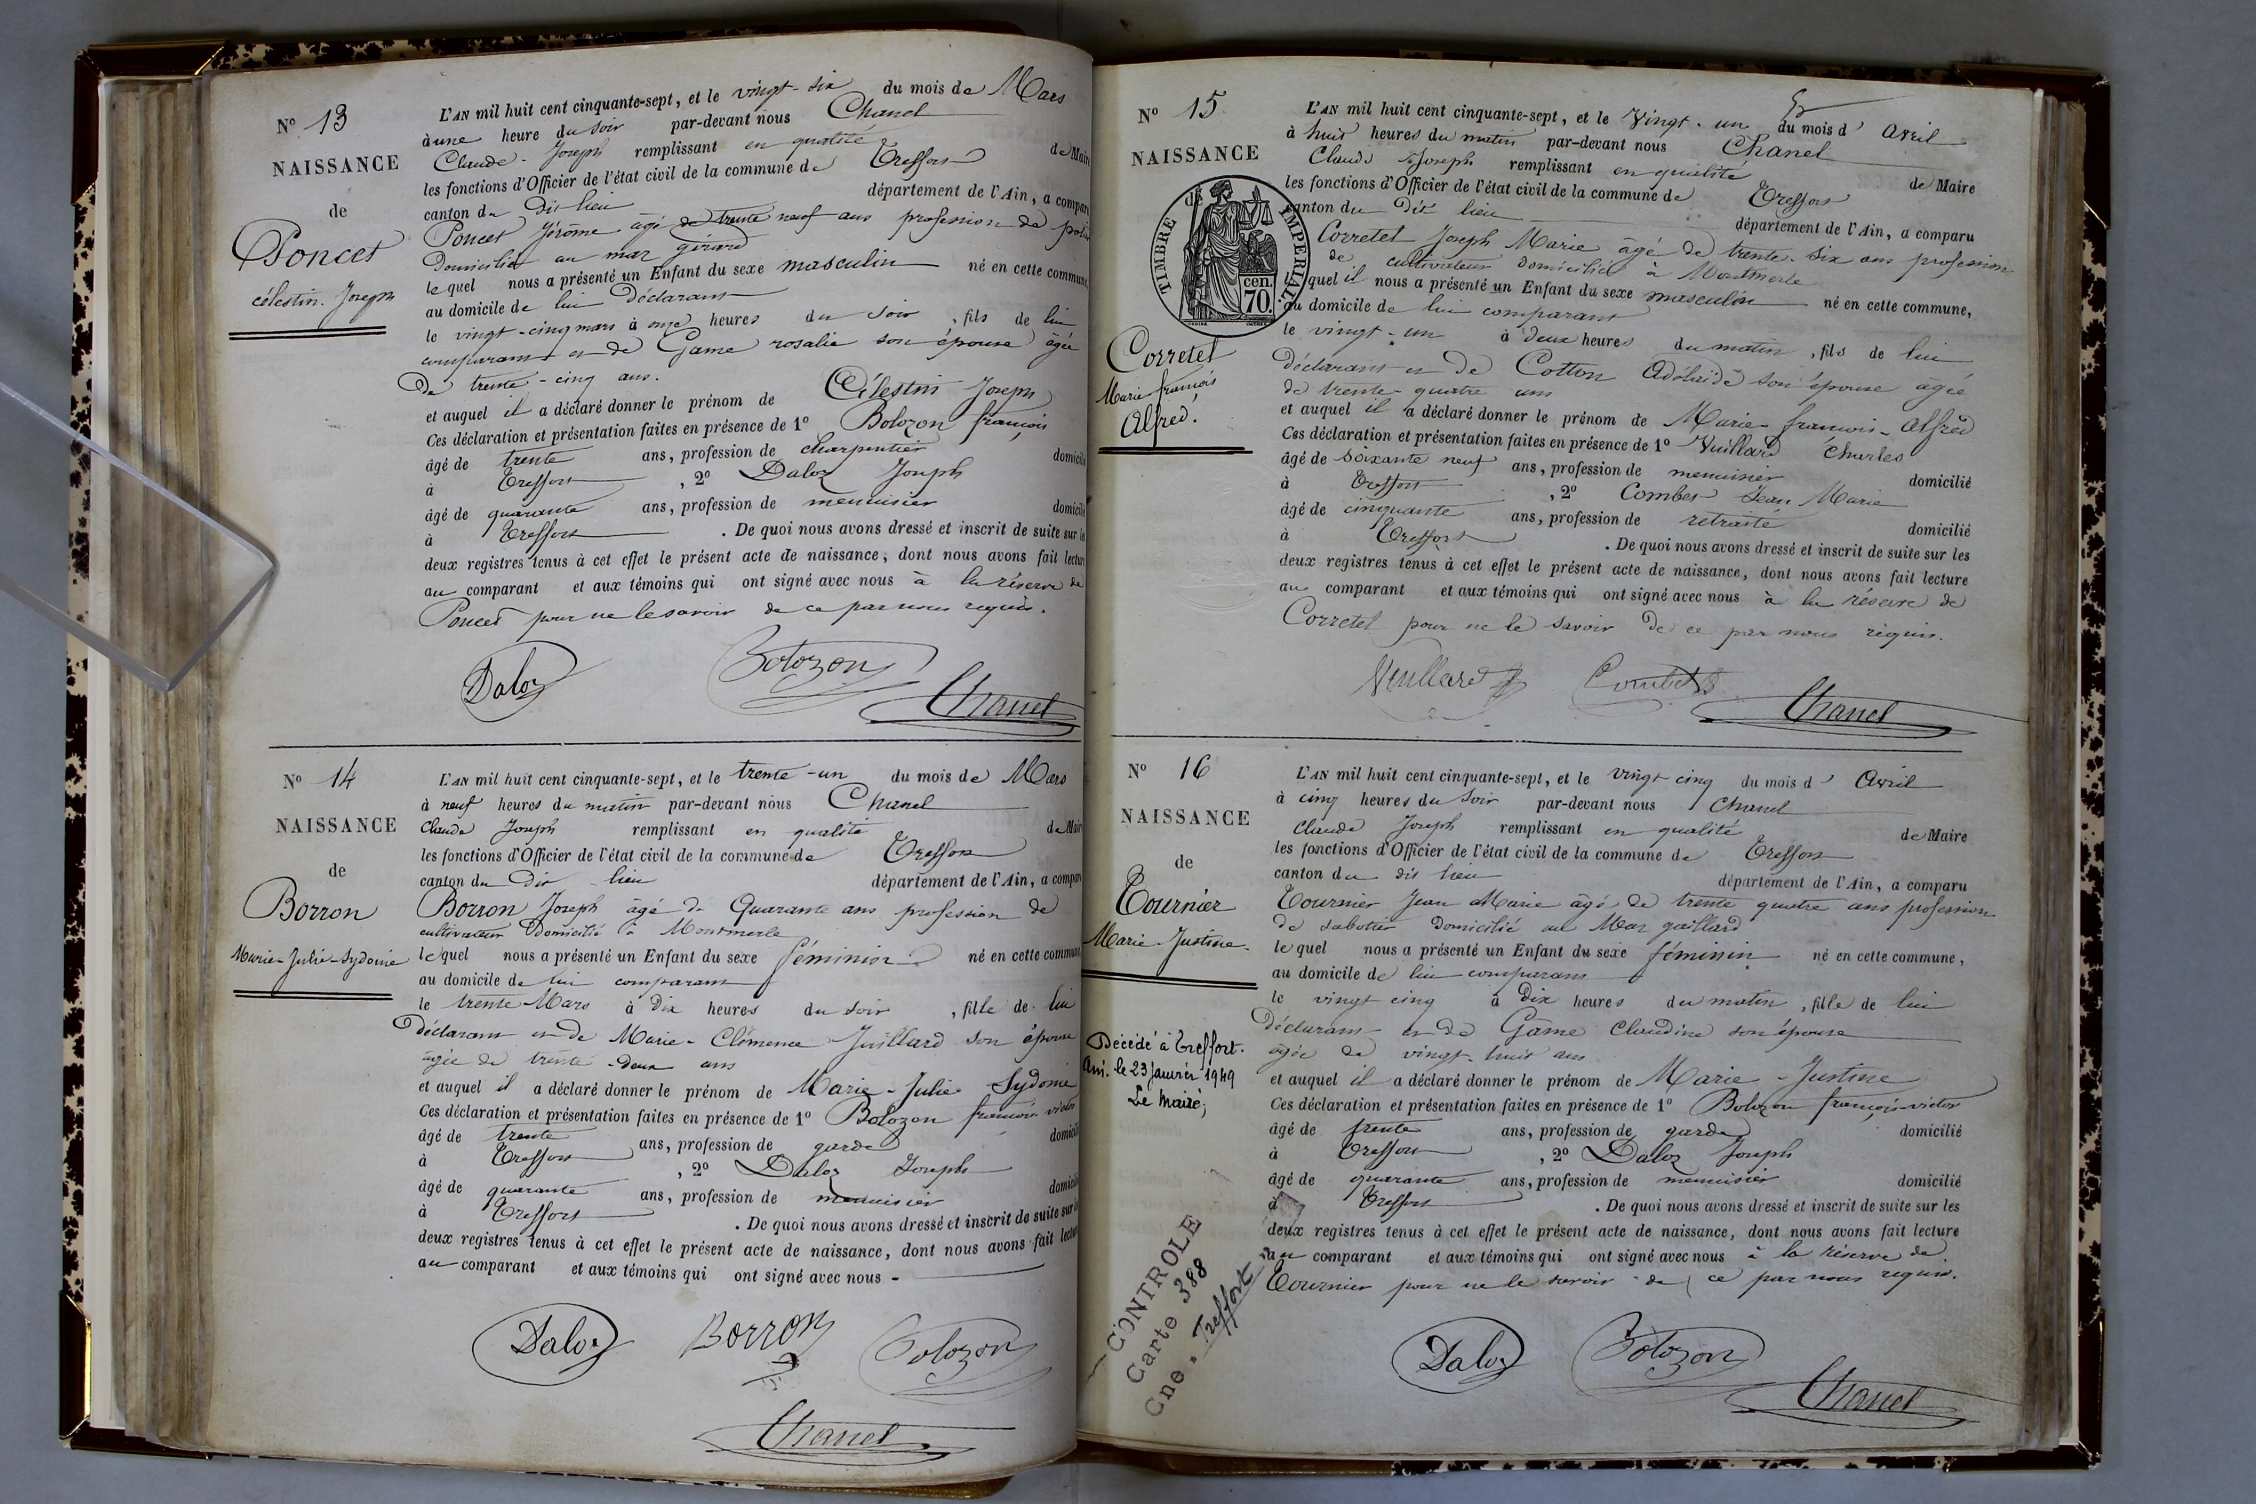 N° 13
NAISSANCE
de
Poncet
célestin. Joseph
L'AN mil huit cent cinquante-sept, et le vingt-six du mois de Mars
à une heure du soir par-devant nous Chanel
Claude-Joseph remplissant en qualité de Maire
les fonctions d'Officier de l'état civil de la commune de Treffort
canton du dit lieu département de l'Ain, a comparu
Poncet Jérôme âgé de trente neuf ans profession de
domicilié au mas gérard
le quel nous a présenté un Enfant du sexe masculin né en cette commune,
au domicile de lui Déclarant
le vingt-cinq mars à onze heures du soir, fils de lui
comparant et de Game rosalie son épouse âgée
de trente-cinq ans.
et auquel il a déclaré donner le prénom de Célestin Joseph
Ces déclaration et présentation faites en présence de 1° Bolozon françois
âgé de trente ans, profession de charpentier domicilié
à Treffort, 2° Daloz Joseph
âgé de quarante ans, profession de menuisier domicilié
à Treffort. De quoi nous avons dressé et inscrit de suite sur les
deux registres tenus à cet effet le présent acte de naissance, dont nous avons fait lecture
au comparant et aux témoins qui ont signé avec nous à la réserve de
Poncet pour ne le savoir de ce par nous requis.
Daloz Bolozon Chanel
N° 14
NAISSANCE
de
Borron
Marie-Julie-Sydonie
L'AN mil huit cent cinquante-sept, et le trente-un du mois de Mars
à neuf heures du matin par-devant nous Chanel
Claude Joseph remplissant en qualité de Maire
les fonctions d'Officier de l'état civil de la commune de Treffort
canton du Dit lieu département de l'Ain, a comparu
Borron Joseph âgé de Quarante ans profession de
cultivateur Domicilié à Montmerle
le quel nous a présenté un Enfant du sexe féminin né en cette commune,
au domicile de lui comparant
le trente Mars à Dix heures du soir, fille de lui
Déclarant et de Marie-Clémence Juillard son épouse
âgée de trente-deux ans
et auquel il a déclaré donner le prénom de Marie-Julie Sydonie
Ces déclaration et présentation faites en présence de 1° Bolozon françois victor
âgé de trente ans, profession de garde domicilié
à Treffort, 2° Daloz Joseph
âgé de quarante ans, profession de menuisier domicilié
à Treffort. De quoi nous avons dressé et inscrit de suite sur les
deux registres tenus à cet effet le présent acte de naissance, dont nous avons fait lecture
au comparant et aux témoins qui ont signé avec nous -
Daloz Borron Bolozon
Chanel
N° 15
NAISSANCE
de
TIMBRE IMPERIAL
70 cen.
Corretel
Marie françois
Alfred.
L'AN mil huit cent cinquante-sept, et le Vingt-un du mois d' Avril
à huit heures du matin par-devant nous Chanel
Claude Joseph remplissant en qualité de Maire
les fonctions d'Officier de l'état civil de la commune de Treffort
canton du Dit lieu département de l'Ain, a comparu
Corretel Joseph Marie âgé de trente-six ans profession
de cultivateur domicilié à Montmerle
le quel il nous a présenté un Enfant du sexe masculin né en cette commune,
au domicile de lui comparant
le vingt-un à deux heures du matin, fils de lui
Déclarant et de Cotton Adélaïde son épouse âgée
de trente-quatre ans
et auquel il a déclaré donner le prénom de Marie-françois-Alfred
Ces déclaration et présentation faites en présence de 1° Vuillard Charles
âgé de soixante neuf ans, profession de menuisier domicilié
à Treffort, 2° Combet Jean Marie
âgé de cinquante ans, profession de retraité domicilié
à Treffort. De quoi nous avons dressé et inscrit de suite sur les
deux registres tenus à cet effet le présent acte de naissance, dont nous avons fait lecture
au comparant et aux témoins qui ont signé avec nous à la réserve de
Corretel pour ne le savoir De ce par nous requis.
Vuillard Combet Chanel
N° 16
NAISSANCE
de
Tournier
Marie-Justine.
Décédé à Treffort.
Ain. le 23 janvier 1949
Le Maire,
CONTROLE
Carte 388
Cne. Treffort
L'AN mil huit cent cinquante-sept, et le vingt cinq du mois d' Avril
à cinq heures du Soir par-devant nous Chanel
Claude Joseph remplissant en qualité de Maire
les fonctions d'Officier de l'état civil de la commune de Treffort
canton du dit lieu département de l'Ain, a comparu
Tournier Jean Marie âgé de trente quatre ans profession
de sabotier domicilié au Mas gaillard
le quel nous a présenté un Enfant du sexe féminin né en cette commune,
au domicile de lui comparant
le vingt cinq à Dix heures du matin, fille de lui
Déclarant et de Game Claudine son épouse
âgée de vingt-huit ans
et auquel il a déclaré donner le prénom de Marie-Justine
Ces déclaration et présentation faites en présence de 1° Bolozon françois-victor
âgé de trente ans, profession de garde domicilié
à Treffort, 2° Daloz Joseph
âgé de quarante ans, profession de menuisier domicilié
à Treffort. De quoi nous avons dressé et inscrit de suite sur les
deux registres tenus à cet effet le présent acte de naissance, dont nous avons fait lecture
au comparant et aux témoins qui ont signé avec nous à la réserve de
Tournier pour ne le savoir de ce par nous requis.
Daloz Bolozon Chanel